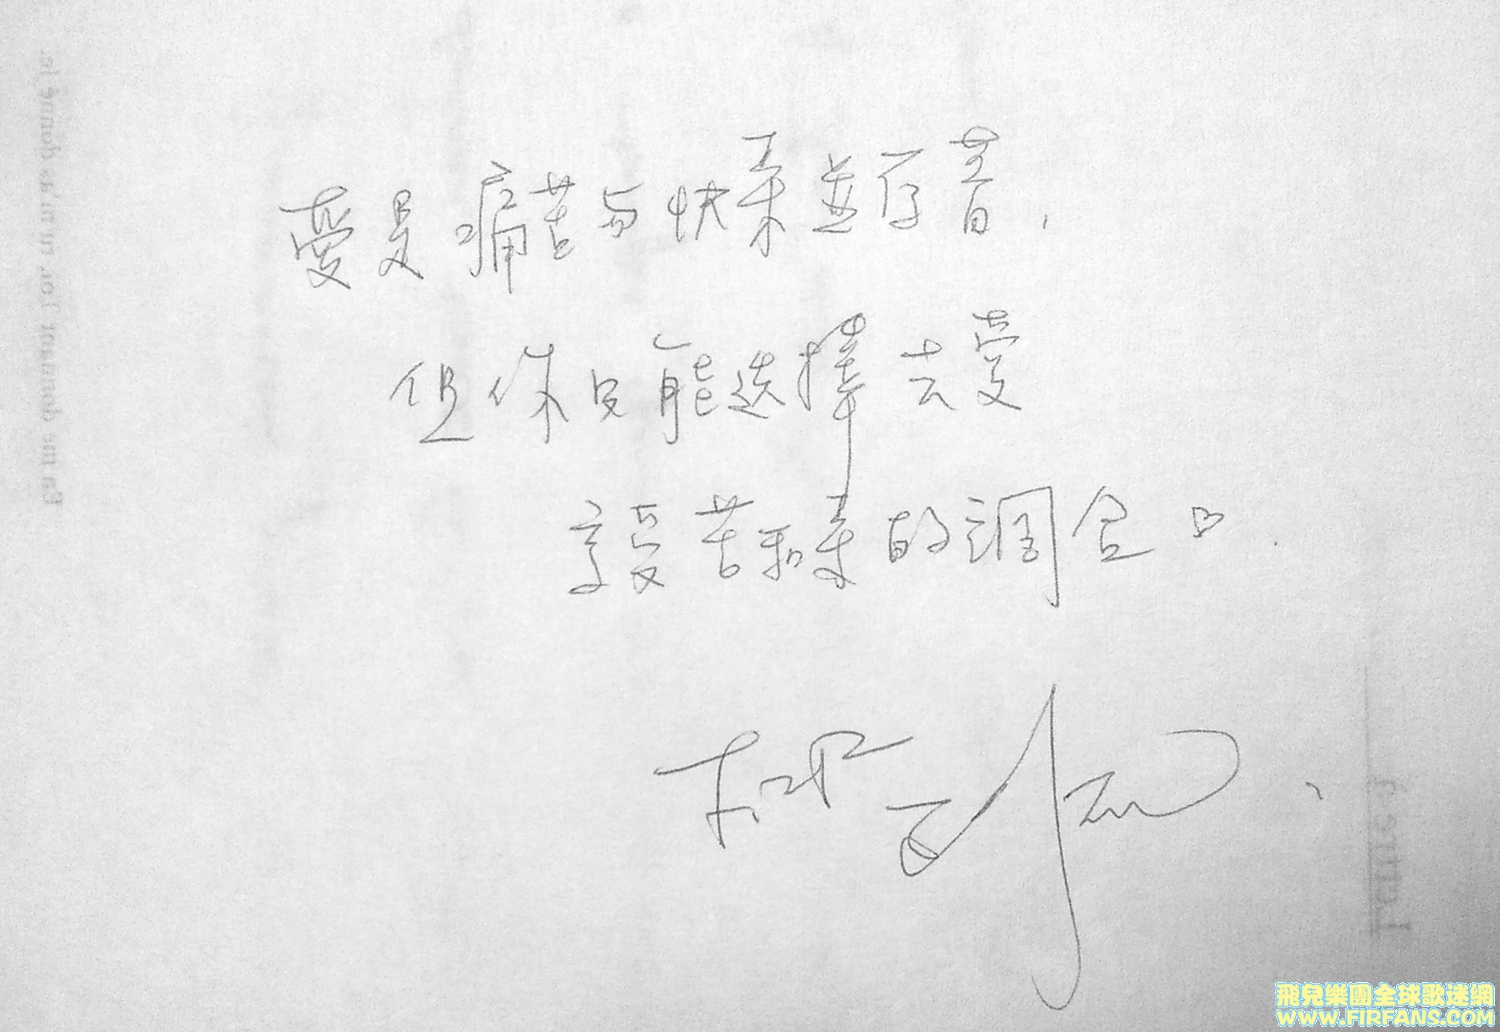 愛是痛苦与快樂並存著，
但你只能選擇去愛
享受苦和樂的調合♡.
飛兒樂團全球歌迷網
WWW.FIRFANS.COM